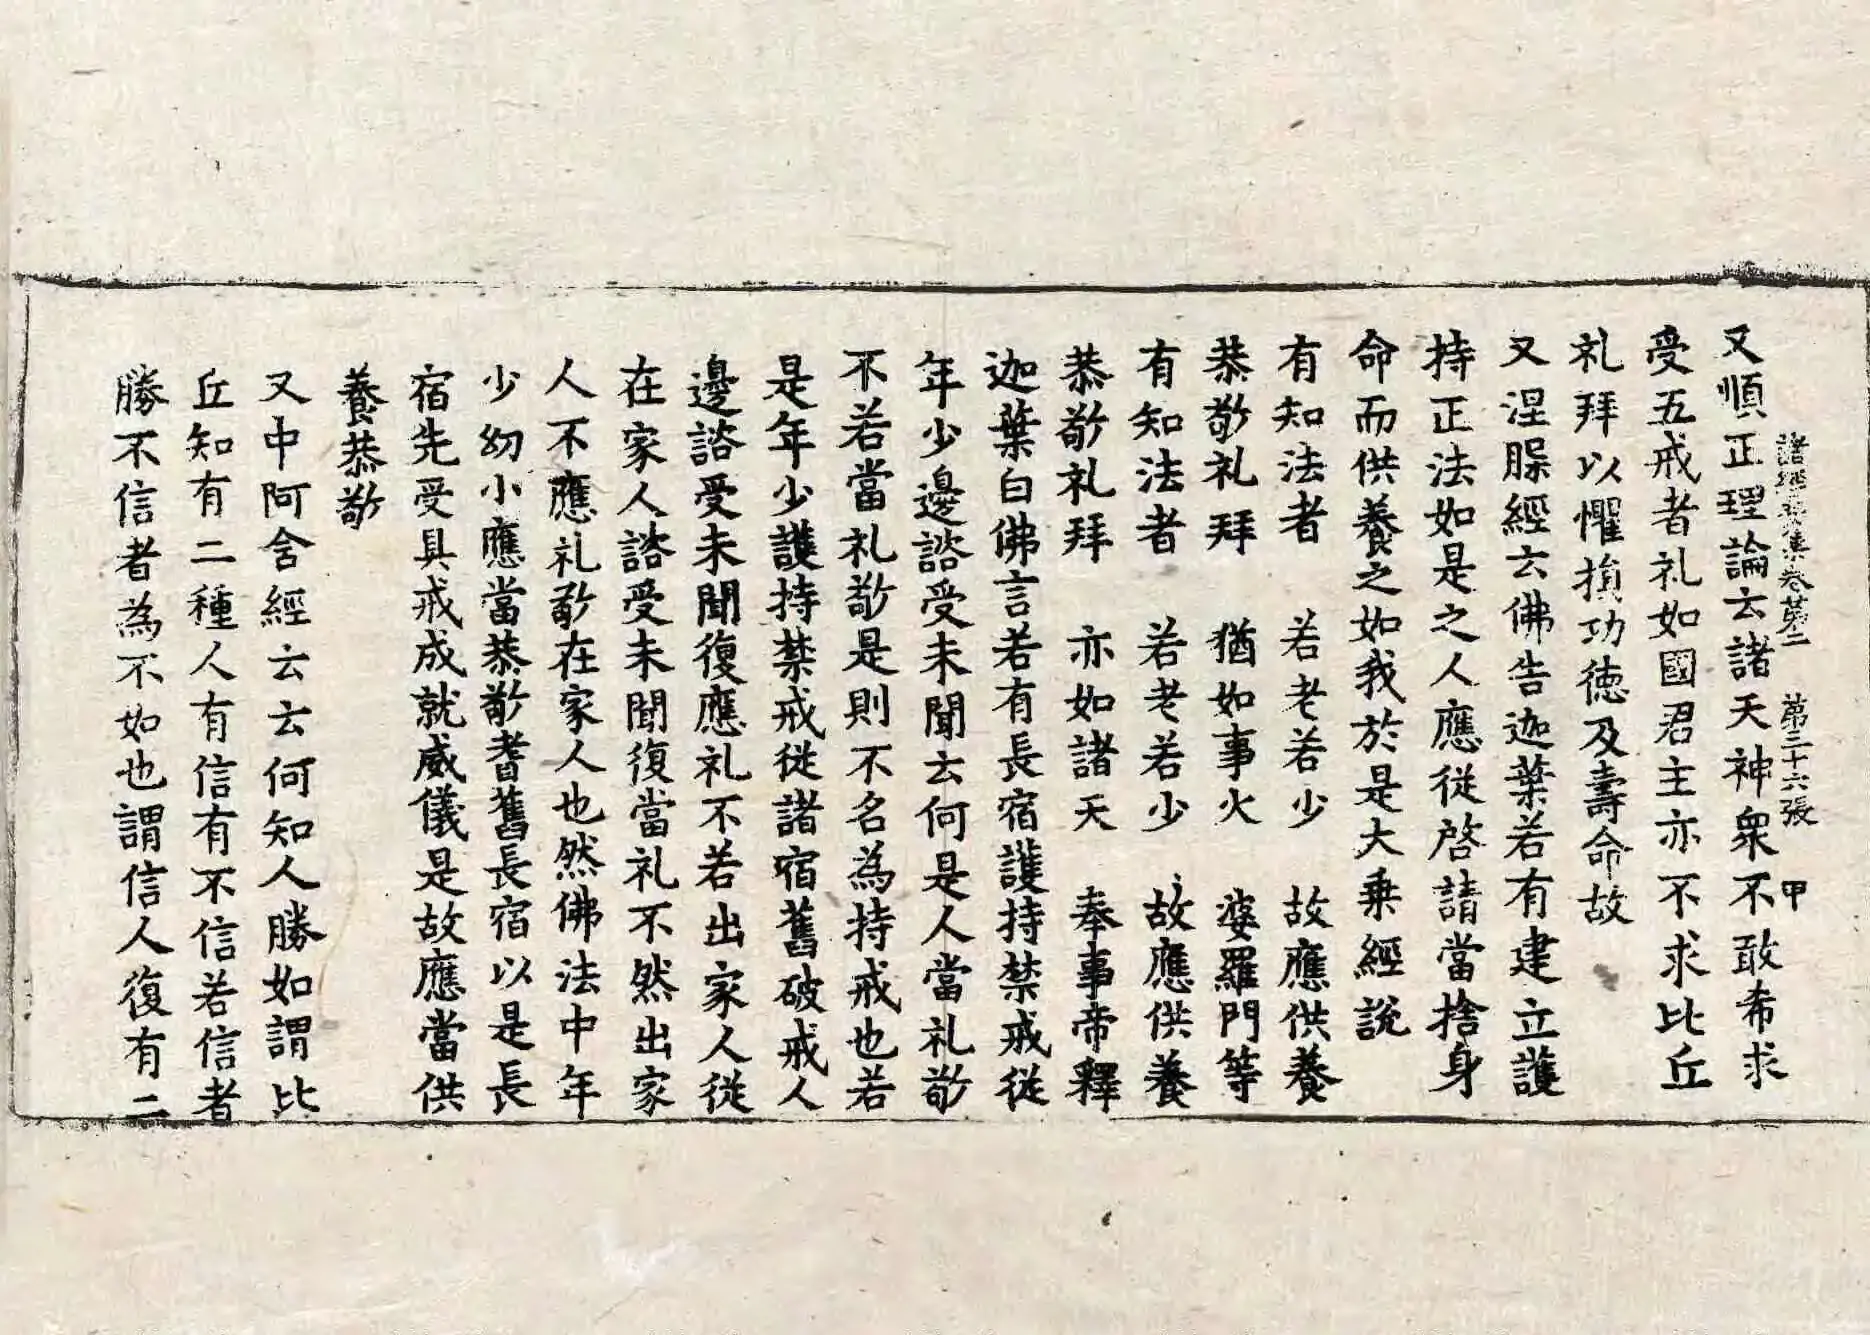 諸經要集卷第二　第三十六張　甲
又順正理論云諸天神衆不敢希求
受五戒者礼如國君主亦不求比丘
礼拜以懼損功徳及壽命故
又涅䏶經云佛告迦葉若有建立護
持正法如是之人應從啓請當捨身
命而供養之如我於是大乗經說
有知法者　若老若少　故應供養
恭敬礼拜　猶如事火　婆羅門等
有知法者　若老若少　故應供養
恭敬礼拜　亦如諸天　奉事帝釋
迦葉白佛言若有長宿護持禁戒從
年少邊諮受未聞云何是人當礼敬
不若當礼敬是則不名為持戒也若
是年少護持禁戒從諸宿舊破戒人
邊諮受未聞復應礼不若出家人從
在家人諮受未聞復當礼不然出家
人不應礼敬在家人也然佛法中年
少幼小應當恭敬耆舊長宿以是長
宿先受具戒成就威儀是故應當供
養恭敬
又中阿含經云云何知人勝如謂比
丘知有二種人有信有不信若信者
勝不信者為不如也謂信人復有二